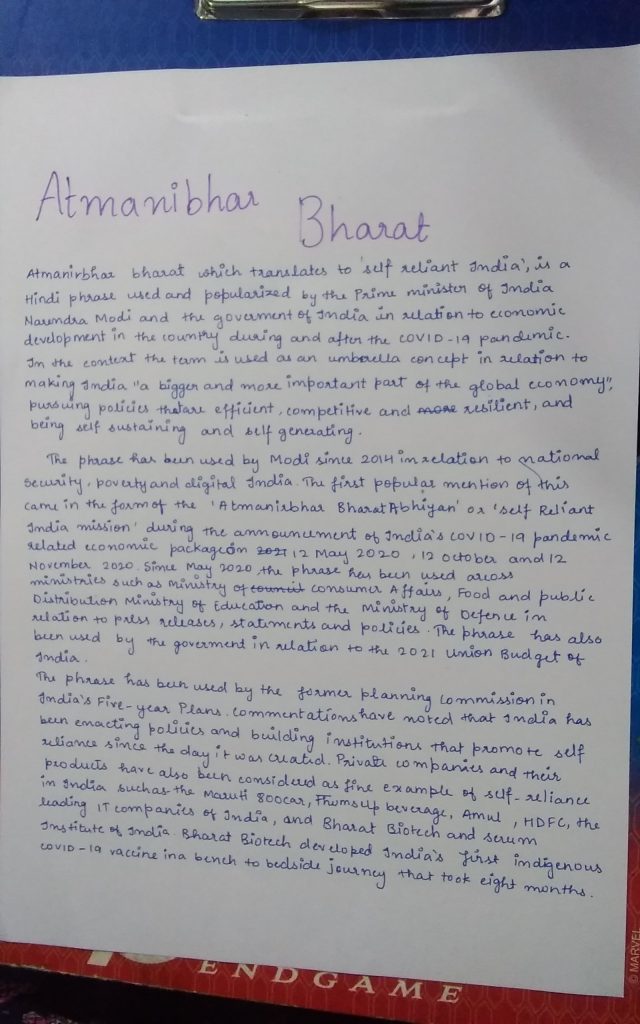 Atmanibhar Bharat
Atmanirbhar bharat which translates to 'self reliant India', is a
Hindi phrase used and popularized by the Prime minister of India
Narendra Modi and the goverment of India in relation to economic
development in the country during and after the COVID-19 pandemic.
In the context the term is used as an umbrella concept in relation to
making India "a bigger and more important part of the global economy",
pursuing policies that are efficient, competitive and more resilient, and
being self sustaining and self generating.
The phrase has been used by Modi since 2014 in relation to national
security, poverty and digital India. The first popular mention of this
came in the form of the 'Atmanirbhar Bharat Abhiyan' or 'self Reliant
India mission' during the announcement of India's COVID-19 pandemic
related economic package on 2021 12 May 2020, 12 October and 12
November 2020. Since May 2020, the phrase has been used across
ministries such as Ministry of council consumer Affairs, Food and public
Distribution Ministry of Education and the Ministry of Defence in
relation to press releases, statements and policies. The phrase has also
been used by the goverment in relation to the 2021 Union Budget of
India.
The phrase has been used by the former planning commission in
India's Five-year Plans. Commentations have noted that India has
been enacting policies and building institutions that promote self
reliance since the day it was created. Private companies and their
products have also been considered as fine example of self-reliance
in India such as the Maruti 800 car, Thums Up beverage, Amul, HDFC, the
leading IT companies of India, and Bharat Biotech and serum
Institute of India. Bharat Biotech developed India's first indigenous
COVID-19 vaccine in a bench to bedside journey that took eight months.
ENDGAME
© MARVEL